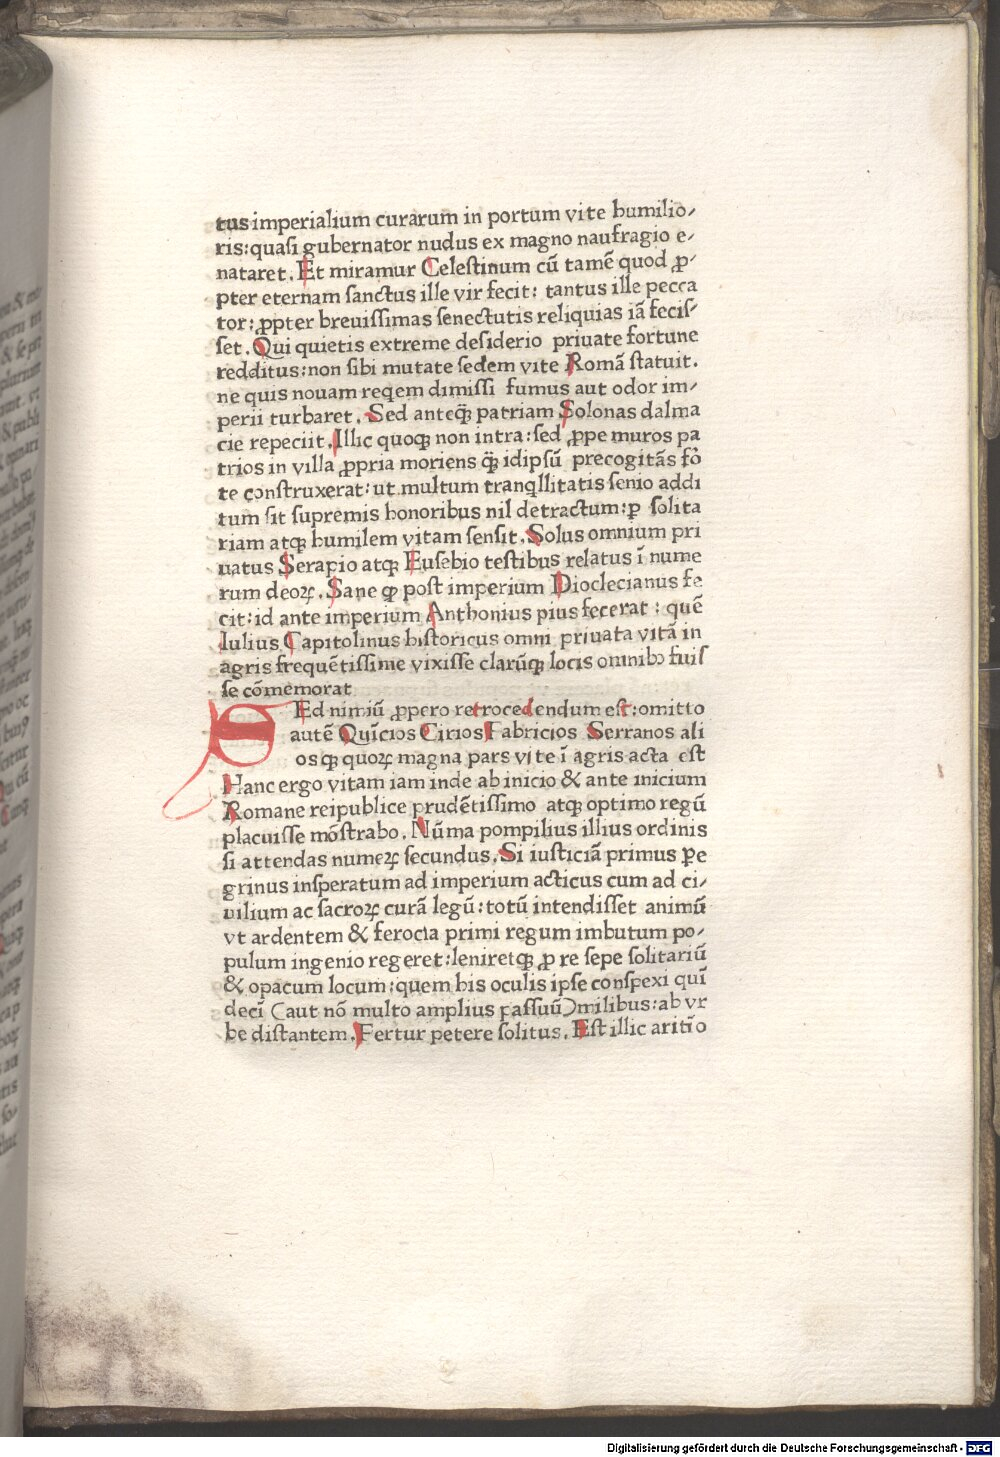 tus imperialium curarum in portum vite humilio⸗
ris: quasi gubernator nudus ex magno naufragio e⸗
nataret. Et miramur Celestinum cū tamē quod ꝓ⸗
pter eternam sanctus ille vir fecit: tantus ille pecca
tor: ꝓpter breuissimas senectutis reliquias iā fecis⸗
set. Qui quietis extreme desiderio priuate fortune
redditus: non sibi mutate sedem vite Romā statuit.
ne quis nouam regem dimissi fumus aut odor im⸗
perii turbaret. Sed anteq̄ patriam Solonas dalma
cie repeciit. Illic quoqꝫ non intra: sed ꝓpe muros pa
trios in villa ꝓpria moriens q̄ idipsū precogitās fo
te construxerat: ut multum tranqllitatis senio addi
tum sit supremis honoribus nil detractum: ꝑ solita
riam atqꝫ humilem vitam sensit. Solus omnium pri
uatus Serapio atqꝫ Eusebio testibus relatus ī nume
rum deoꝝ. Sane ꝙ post imperium Dioclecianus fe
cit: id ante imperium Anthonius pius fecerat: quē
Iulius Capitolinus historicus omni priuata vitā in
agris frequētissime vixisse clarūqꝫ locis omnibꝰ fuis
se cōmemorat
SEd nimiū ꝓpero retrocedendum est: omitto
autē Quīcios Cirios Fabricios Serranos ali
osqꝫ quoꝝ magna pars vite ī agris acta est
Hanc ergo vitam iam inde ab inicio & ante inicium
Romane reipublice prudētissimo atqꝫ optimo regū
placuisse mōstrabo. Nūma pompilius illius ordinis
si attendas numeꝝ secundus. Si iusticiā primus ꝑe
grinus insperatum ad imperium acticus cum ad ci⸗
uilium ac sacroꝝ curā legū: totū intendisset animū
vt ardentem & ferocia primi regum imbutum po⸗
pulum ingenio regeret: leniretqꝫ ꝓ re sepe solitariū
& opacum locum: quem his oculis ipse conspexi quī
decī (aut nō multo amplius passuū) milibus: ab vr
be distantem. Fertur petere solitus. Est illic aritio
Digitalisierung gefördert durch die Deutsche Forschungsgemeinschaft - DFG